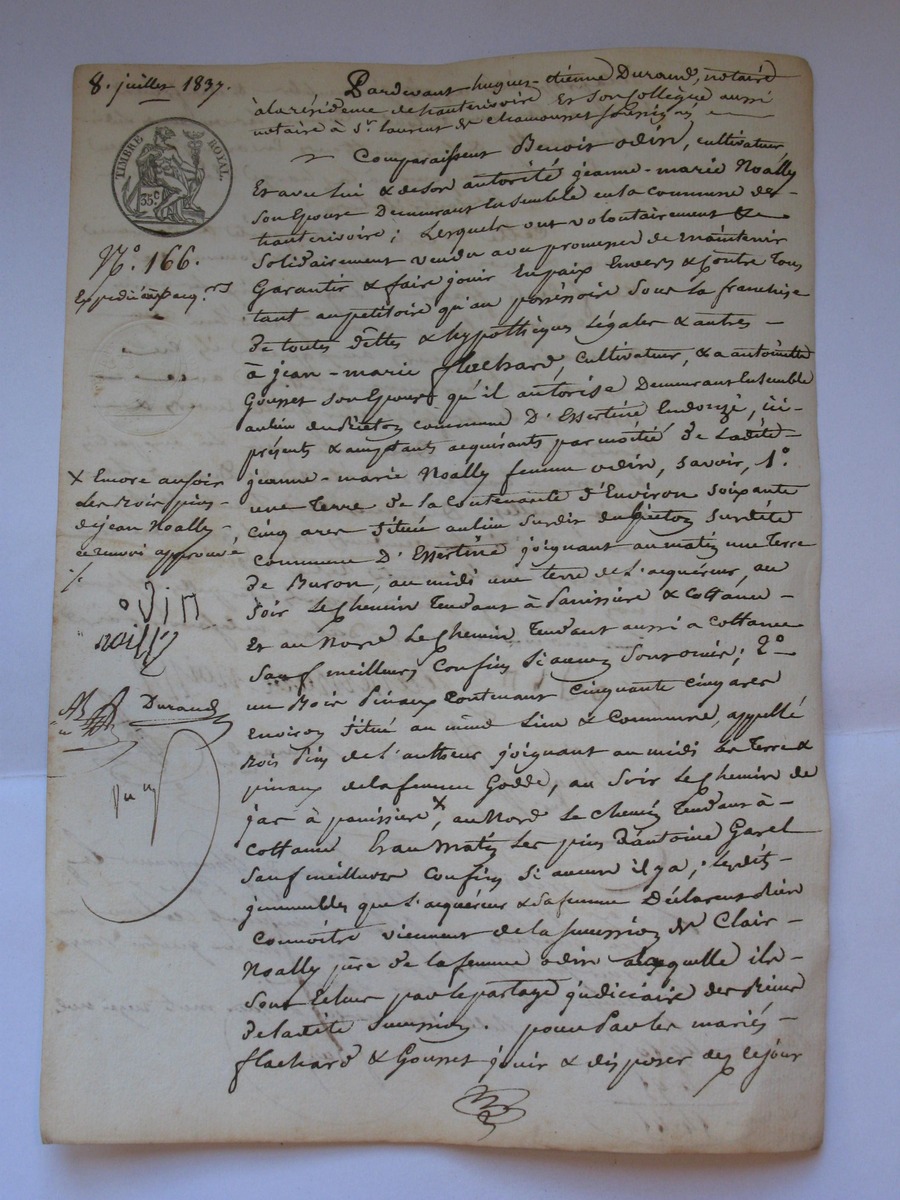 8. juillet 1837.
TIMBRE ROYAL.
35 c
N.o 166.
Expédié acq.rs
x Encore au soir
Les Bois pins
de jean Noally
renvoi approuvé
odin
noally
Durand
Pardevant hugues-étienne Durand, notaire
à la résidence de hauterivoire Et son Collègue aussi
notaire à St. laurent de Chamousset soussignés
Comparaissent Benoit odin, cultivateur,
Et avec lui & de son autorité jeanne-marie Noally
son Epouse Demeurant Ensemble en la commune de
hauterivoire; Lesquels ont volontairement &
Solidairement vendu avec promesse de maintenir
Garantir & faire jouir En paix Envers & Contre Tous
tant au petitoire qu'au possessoire sous La franchise
de toutes dettes & hypothèques Légales & autres -
à jean-marie flachard, Cultivateur, & à antoinette
Gousset son Epouse qu'il autorise Demeurant Ensemble
au lieu du commune D'Essertine En donzy, ici
présents & acceptants acquérants par moitié de Ladite -
jeanne-marie Noally femme odin, Savoir, 1.o
une Terre de la Contenante d'Environ soixante
Cinq ares située au lieu Surdit du Surdite
commune D'Essertine joignant au matin une Terre
de Buron, au midi une terre de L'acquéreur, au
Soir Le Chemin Tendant à Panissière & Cottance -
Et au Nord Le Chemin Tendant aussi à Cottance
Sauf meilleurs Confins si aucuns sont omis; 2.o -
un Bois Pinaux Contenant Cinquante Cinq ares
Environ situé au même Lieu & Commune, appellé
Bois Pins de L' joignant au midi Les Terre &
pinaux de la femme Godde, au Soir Le Chemin de
jas à panissière x, au Nord Le chemin Tendant à -
Cottance Et au Matin Les pins d'antoine Garel
Sauf meilleurs Confins si aucun il y a; Lesdits -
jmmeubles que L'acquéreur & Sa femme Déclarent Bien
Connoitre viennent de la succession de Clair -
Noally père de la femme odin à laquelle ils -
sont Echus par le partage judiciaire des Biens
de ladite succession. pour Par les mariés -
flachard & Gousset jouir & disposer dès Ce jour